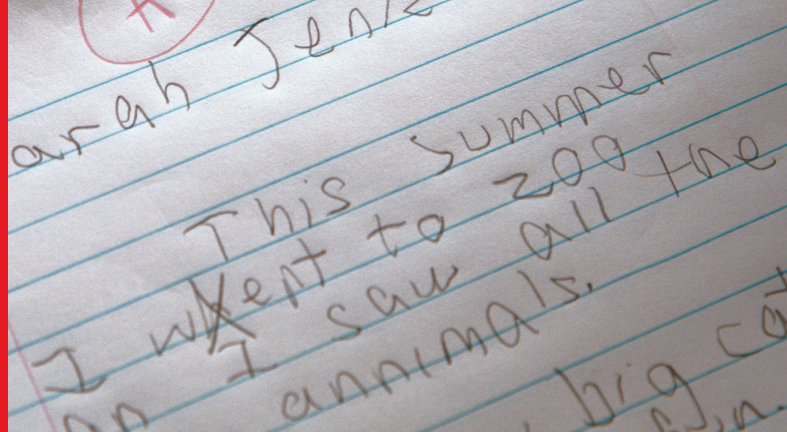 A
arah Jenk
This summer
I went to zoo
I saw all the
annimals.
big cat